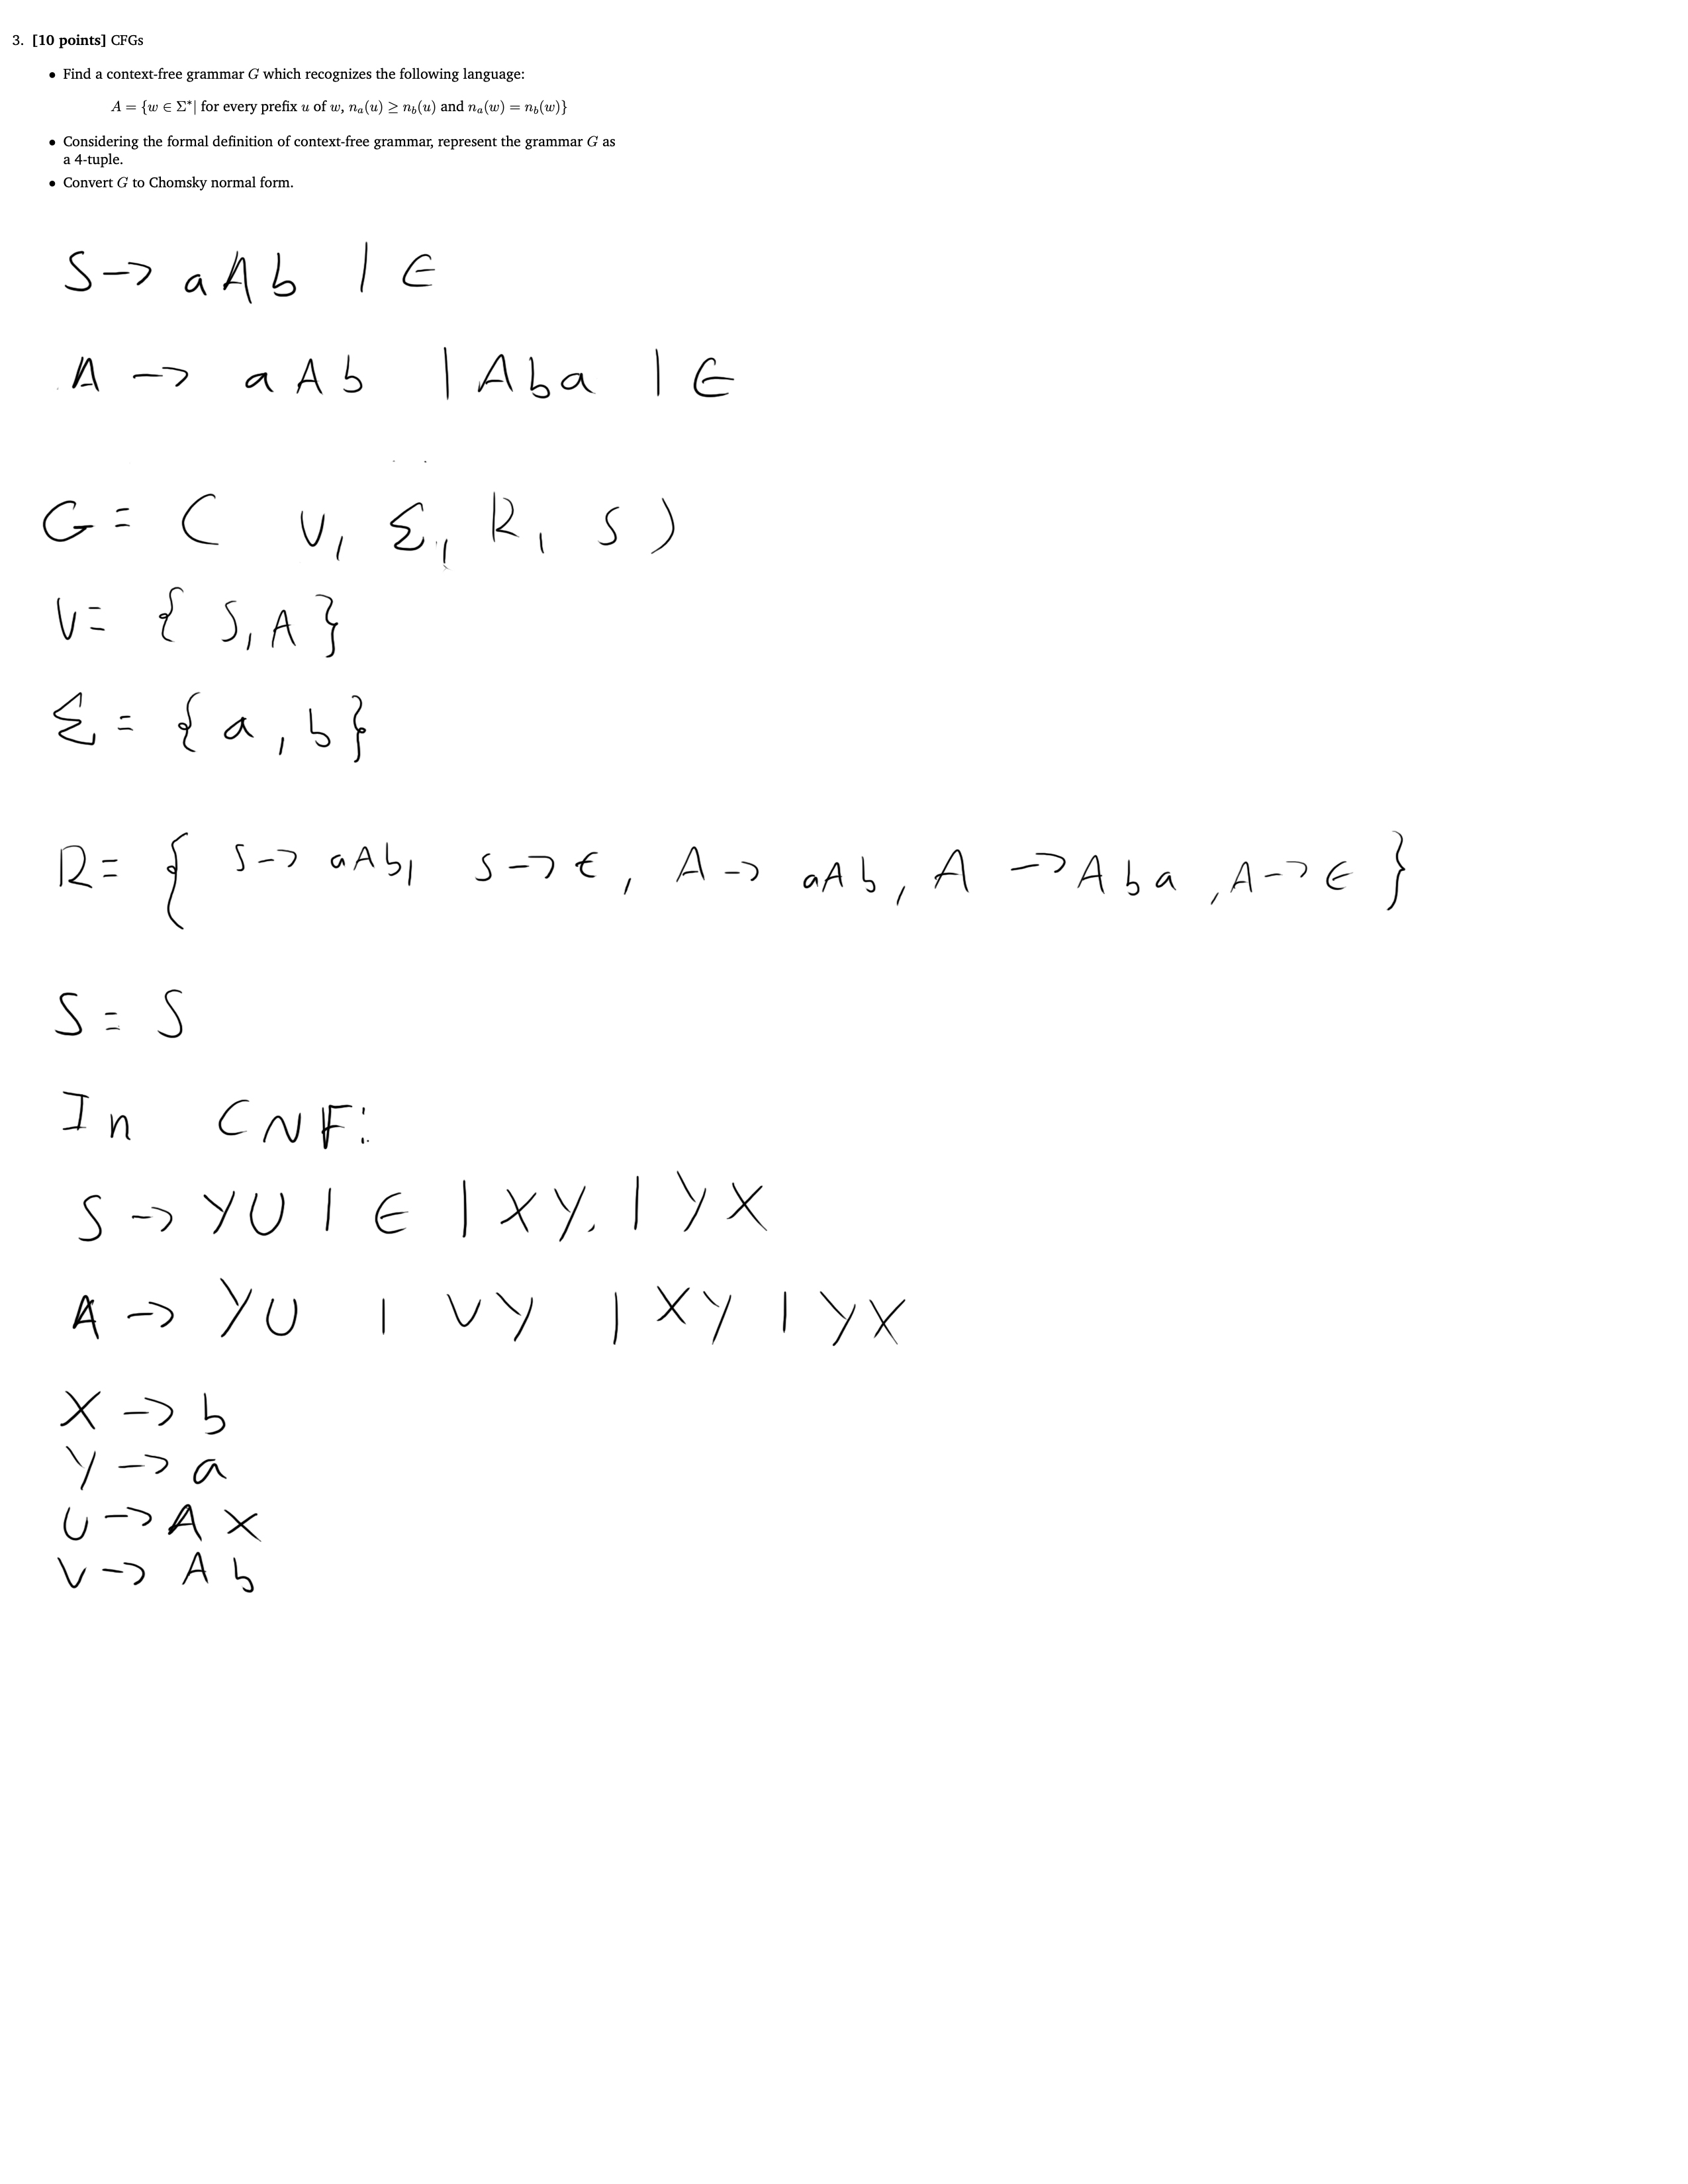 3. [10 points] CFGs
• Find a context-free grammar G which recognizes the following language:
A = {w ∈ Σ*| for every prefix u of w, nₐ(u) ≥ n_b(u) and nₐ(w) = n_b(w)}
• Considering the formal definition of context-free grammar, represent the grammar G as
a 4-tuple.
• Convert G to Chomsky normal form.
S -> aAb | ∈
A -> aAb | Aba | ∈
G = ( V, Σ, R, S )
V = { S, A }
Σ = { a, b }
R = { S -> aAb, S -> ∈, A -> aAb, A -> Aba, A -> ∈ }
S = S
In CNF:
S -> YU | ∈ | XY | YX
A -> YU | VY | XY | YX
X -> b
Y -> a
U -> AX
V -> Ab